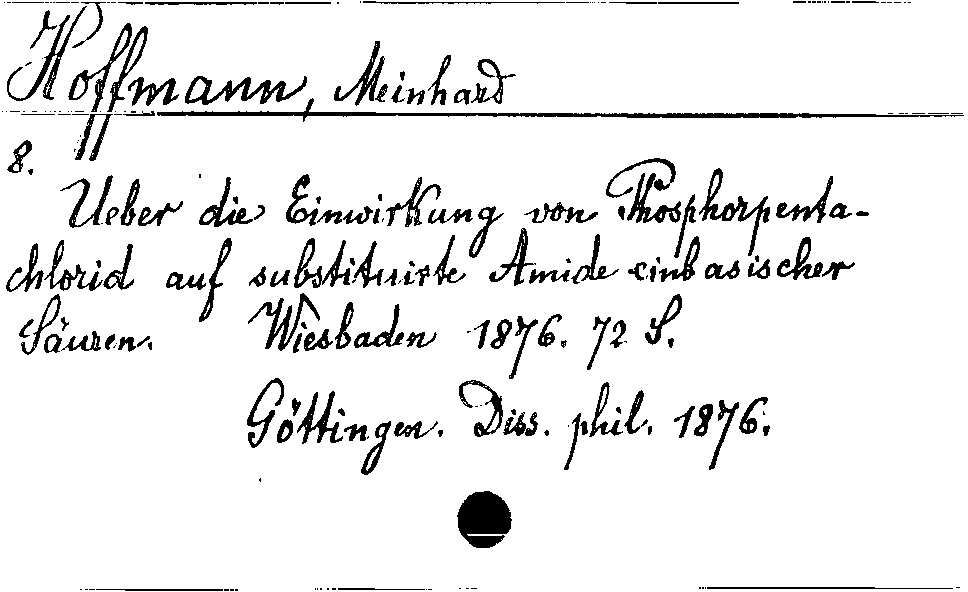 Hoffmann, Meinhard
8.
Ueber die Einwirkung von Phosphorpenta-
chlorid auf substituirte Amide einbasischer
Säuren. Wiesbaden 1876. 72 S.
Göttingen. Diss. phil. 1876.